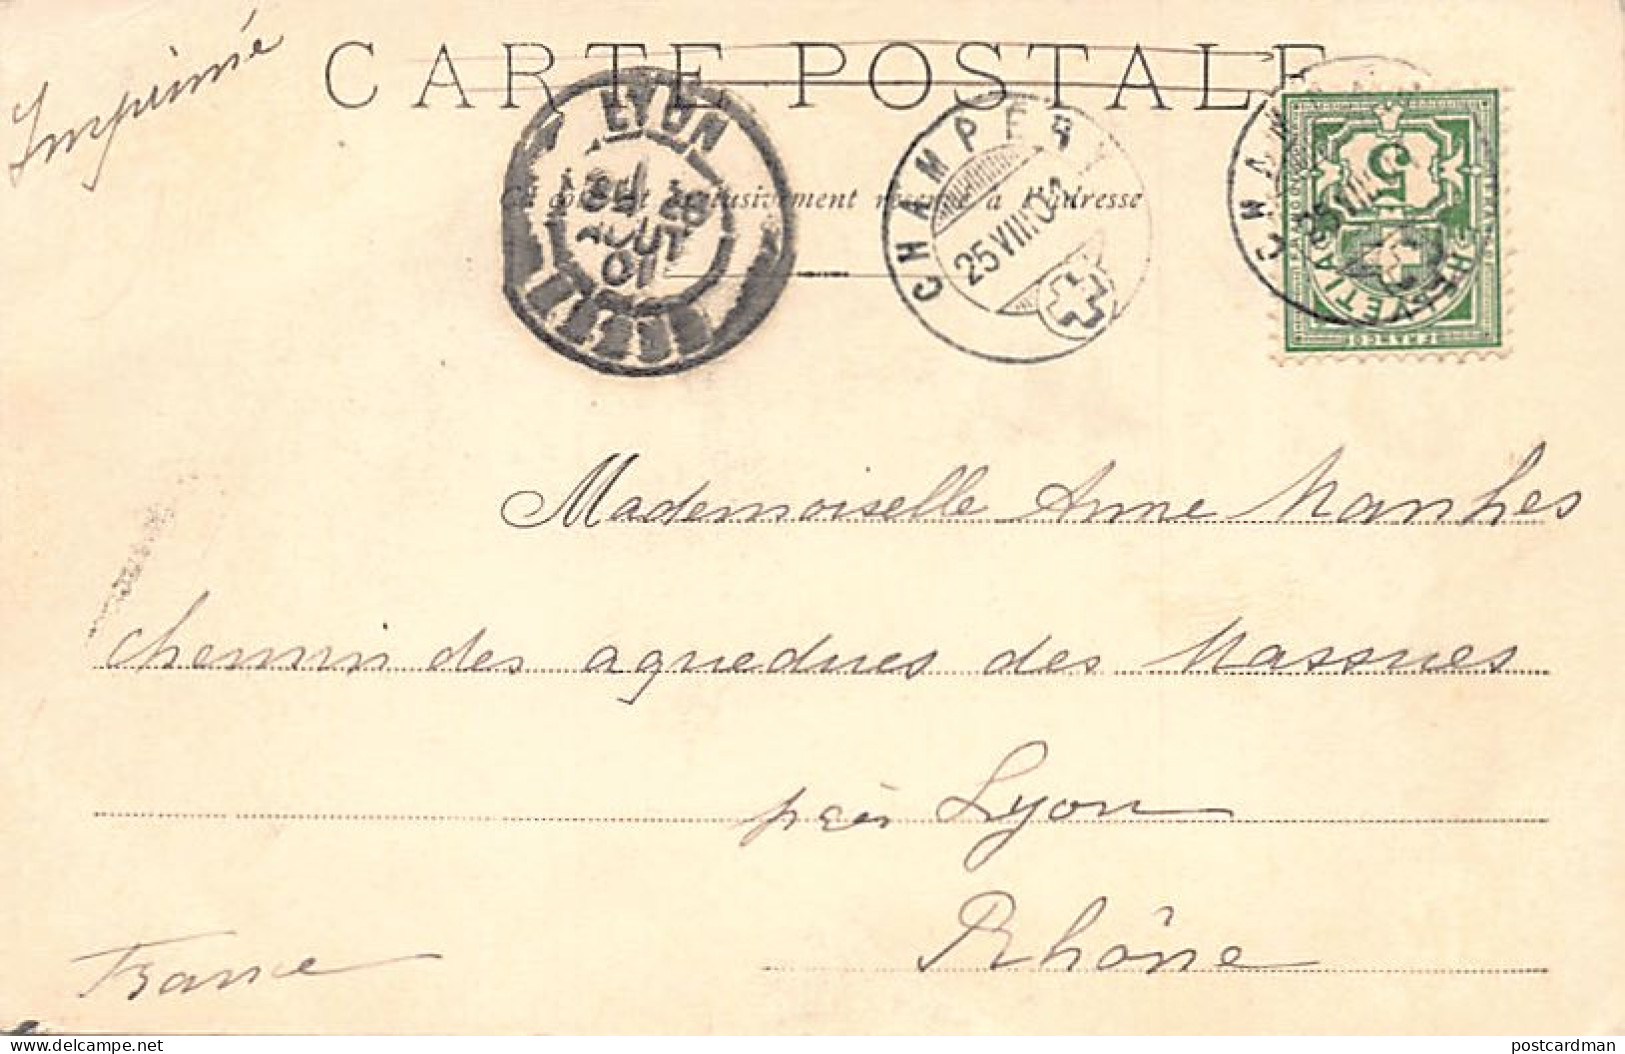 Imprimé
CARTE POSTALE
Ce côté est exclusivement réservé à l'adresse
LYON
28
AOUT
01
CHAMPERY
25 VIII 01
CHAM
25 VIII
5
HELVETIA
FRANCO
Mademoiselle Anne Manhes
chemin des aqueducs des Massues
près Lyon
Rhône
France
www.delcampe.net
postcardman